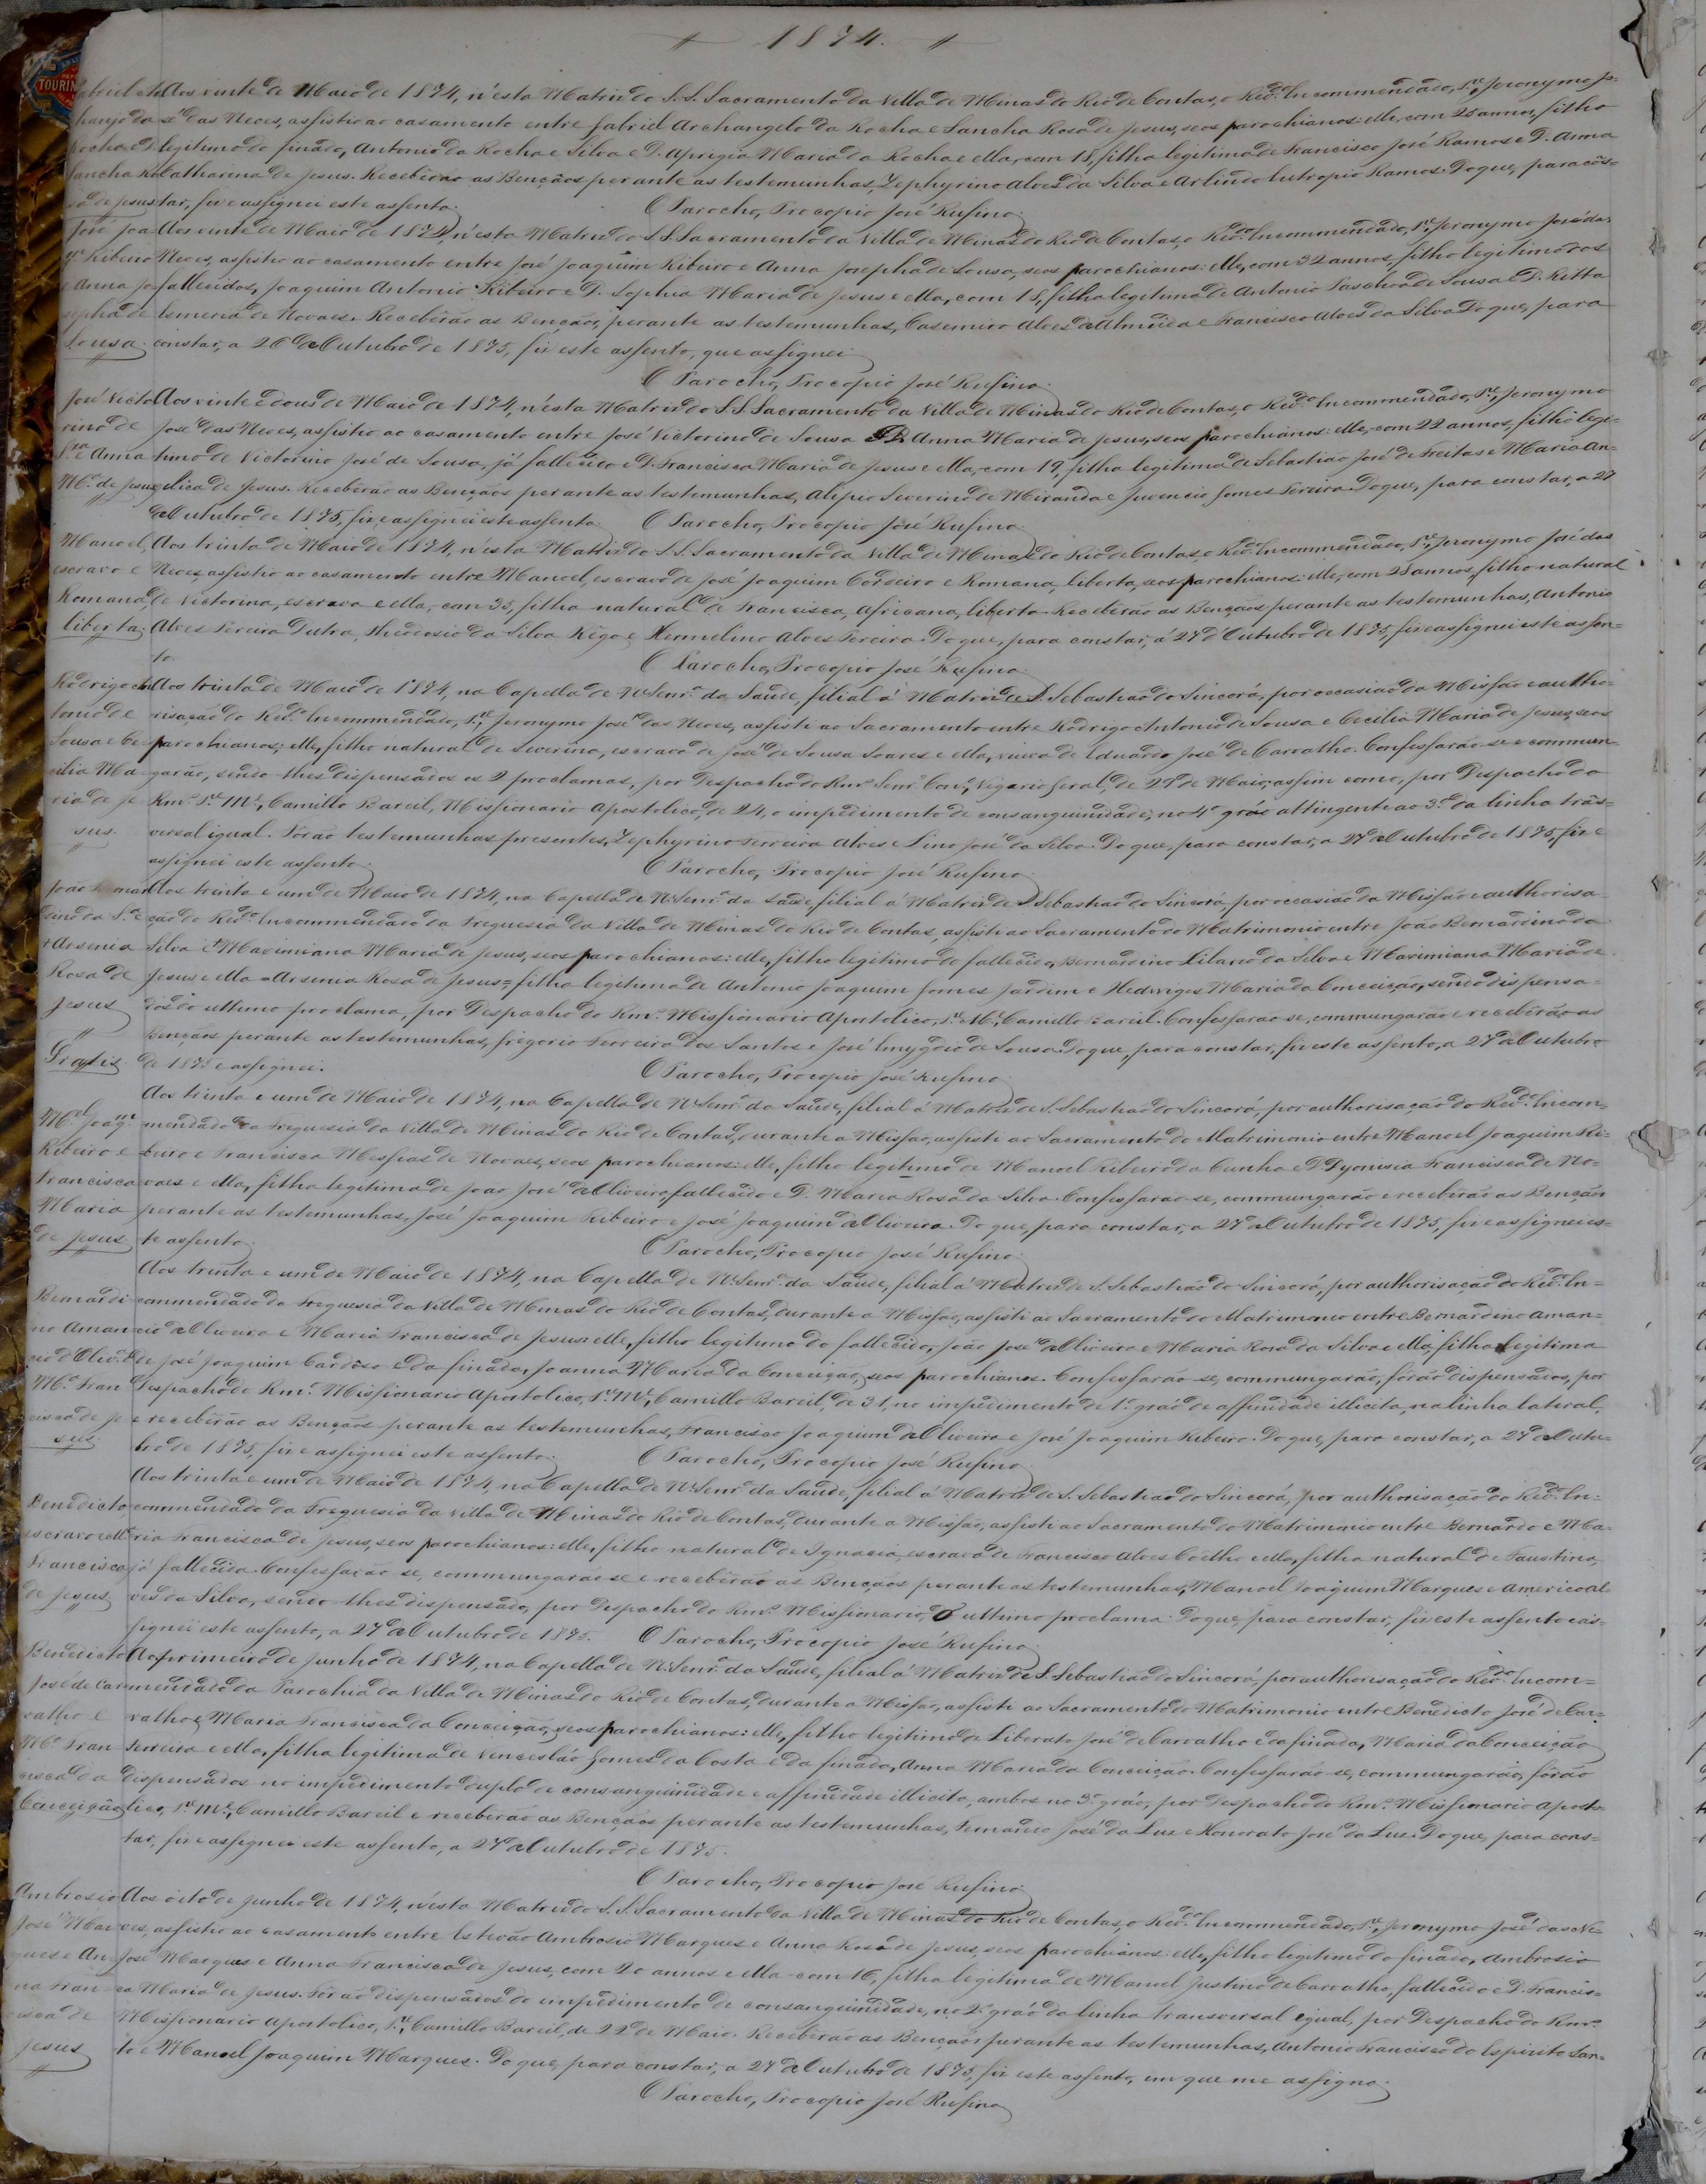 1874.
TOURIN
Gabriel Ar Aos vinte de Maio de 1874, n'esta Matriz do S. S. Sacramento da Villa de Minas do Rio de Contas, o Revdo. Incommendado, Pe. Jeronymo Jo=
chanjo da sé das Neves, assistio ao casamento entre Gabriel Archangelo da Rocha e Sancha Rosa de Jesus, seos parochianos: elle, com 25 annos, filho
Rocha e D. legitimo do finado, Antonio da Rocha e Silva e D. Aprigia Maria da Rocha e ella, com 18, filha legitima de Francisco José Ramos e D. Anna
Sancha Ro Catharina de Jesus. Receberão as Bençãos perante as testemunhas, Zephyrino Alves da Silva e Arlindo Eutropio Ramos. Do que, para cõs=
sa de Jesus tar, fiz e assignei este assento. O Parocho, Procopio José Rufino.
José Joa Aos vinte de Maio de 1874, n'esta Matriz do S. S. Sacramento da Villa de Minas do Rio de Contas, o Revdo. Incommendado, Pe. Jeronymo José das
qm. Ribeiro Neves, assistio ao casamento entre José Joaquim Ribeiro e Anna Josepha de Sousa, seos parochianos: elle, com 32 annos, filho legitimo dos
e Anna Jo fallecidos, Joaquim Antonio Ribeiro e D. Sophia Maria de Jesus e ella, com 18, filha legitima de Antonio Paschoa de Sousa e D. Ritta
sepha de Emeria de Novaes. Receberão as Bençãos, perante as testemunhas, Casemiro Alves d'Almeida e Francisco Alves da Silva. Do que, para
Sousa. constar, a 26 d'Outubro de 1875, fiz este assento, que assignei.
O Parocho, Procopio José Rufino.
José Victo Aos vinte e dous de Maio de 1874, n'esta Matriz do S. S. Sacramento da Villa de Minas do Rio de Contas, o Revdo. Incommendado, Pe. Jeronymo
rino de José das Neves, assistio ao casamento entre José Victorino de Sousa e D. Anna Maria de Jesus, seos parochianos: elle, com 22 annos, filho legi=
Sza. e Anna timo de Victorino José de Sousa, já fallecido e D. Francisca Maria de Jesus e ella, com 19, filha legitima de Sebastião José de Freitas e Maria An=
Ma. de Jesus gelica de Jesus. Receberão as Bençãos perante as testemunhas, Alipio Severino de Miranda e Juvencio Gomes Pereira. Do que, para constar, a 27
d'Outubro de 1875, fiz e assignei este assento. O Parocho, Procopio José Rufino.
Manoel, Aos trinta de Maio de 1874, n'esta Matriz do S. S. Sacramento da Villa de Minas do Rio de Contas, o Revdo. Incommendado, Pe. Jeronymo José das
escravo e Neves, assistio ao casamento entre Manoel, escravo de José Joaquim Cordeiro e Romana, liberta, seos parochianos: elle, com 28 annos, filho natural
Romana, de Victorina, escrava e ella, com 35, filha natural de Francisca, Africana, liberta. Receberão as Bençãos perante as testemunhas, Antonio
liberta. Alves Pereira Dutra, Theodosio da Silva Rêgo e Hermelino Alves Pereira. Do que, para constar, á 27 d'Outubro de 1875, fiz e assignei este assen=
to. O Parocho, Procopio José Rufino.
Rodrigo An Aos trinta de Maio de 1874, na Capella de N. Senrª. da Saude, filial á Matriz de S. Sebastião do Sincorá, por occasião da Missão e autho=
tonio de risação do Revdo. Incommendado, Pe. Jeronymo José das Neves, assisti ao Sacramento entre Rodrigo Antonio de Sousa e Cecilia Maria de Jesus, seos
Sousa e Ce= parochianos; elle, filho natural de Severina, escrava de José de Sousa Soares e ella, viuva de Eduardo José de Carvalho. Confessarão-se e commun=
cilia Ma= garão, sendo-lhes dispensados os 2 proclamas, por Despacho do Rmo. Senr. Con., Vigario Geral, de 29 de Maio, assim como, por Despacho do
ria de Je= Rmo. Pe. Me. Camillo Bareil, Missionario Apostolico, de 24, o impedimento de consanguinidade, no 4º gráo attingente ao 3º. da linha trãs=
sus. versal igual. Forão testemunhas presentes, Zephyrino Ferreira Alves e Lino José da Silva. Do que, para constar, a 27 d'Outubro de 1875, fiz e
assignei este assento. O Parocho, Procopio José Rufino.
João Bernar Aos trinta e um de Maio de 1874, na Capella de N. Senrª. da Saude, filial á Matriz de S. Sebastião do Sincorá, por occasião da Missão e authorisa=
dino da Sa. e ção do Revdo. Incommendado da Freguesia da Villa de Minas do Rio de Contas, assisti ao Sacramento do Matrimonio entre João Bernardino da
+ Arsenia Silva e + Maximiana Maria de Jesus, seos parochianos: elle, filho legitimo do fallecido, Bernardino Hilario da Silva e Maximiana Maria de
Rosa de Jesus e ella = Arsenia Rosa de Jesus = filha legitima de Antonio Joaquim Gomes Jardim e Hedwiges Maria da Conceição, sendo dispensa=
Jesus dos do ultimo proclama, por Despacho do Rmo. Missionario Apostolico, Pe. Me. Camillo Bareil. Confessarão-se, commungarão e receberão as
bençãos perante as testemunhas, Gregorio Moreira dos Santos e José Emygdio de Sousa. Do que, para constar, fiz este assento, a 27 d'Outubro
Gratis. de 1875 e assignei. O Parocho, Procopio José Rufino.
Aos trinta e um de Maio de 1874, na Capella de N. Senrª. da Saude, filial á Matriz de S. Sebastião do Sincorá, por authorisação do Revdo. Incom=
Mel. Joaqm. mendado da Freguesia da Villa de Minas do Rio de Contas, durante a Missão, assisti ao Sacramento do Matrimonio entre Manoel Joaquim Ri=
Ribeiro e beiro e Francisca Messias de Novaes, seos parochianos: elle, filho legitimo de Manoel Ribeiro da Cunha e D. Dyonisia Francisca de No=
Francisca vaes e ella, filha legitima de João José d'Oliveira, fallecido e D. Maria Rosa da Silva. Confessarão-se, commungarão e receberão as Bençãos
Maria perante as testemunhas, José Joaquim Ribeiro e José Joaquim d'Oliveira. Do que, para constar, a 27 d'Outubro de 1875, fiz e assignei es=
de Jesus te assento. O Parocho, Procopio José Rufino.
Aos trinta e um de Maio de 1874, na Capella de N. Senrª. da Saude, filial á Matriz de S. Sebastião do Sincorá, por authorisação do Revdo. In=
Bernardi= commendado da Freguesia da Villa de Minas do Rio de Contas, durante a Missão, assisti ao Sacramento do Matrimonio entre Bernardino Aman=
no Aman= cio d'Oliveira e Maria Francisca de Jesus: elle, filho legitimo do fallecido, João José d'Oliveira e Maria Rosa da Silva e ella, filha legitima
cio d'Olivrª. e de José Joaquim Cardoso e da finada, Joanna Maria da Conceição, seos parochianos. Confessarão-se, commungarão, fôrão dispensados, por
Ma. Fran= Despacho do Rmo. Missionario Apostolico, Pe. Me. Camillo Bareil, de 31, no impedimento de 1º gráo de affinidade illicita, na linha lateral,
cisca de Je= e receberão as Bençãos perante as testemunhas, Francisco Joaquim d'Oliveira e José Joaquim Ribeiro. Do que, para constar, a 27 d'Outu=
sus. bro de 1875, fiz e assignei este assento. O Parocho, Procopio José Rufino.
Aos trinta e um de Maio de 1874, na Capella de N. Senrª. da Saude, filial á Matriz de S. Sebastião do Sincorá, por authorisação do Revdo. In=
Benedicto, commendado da Freguesia da Villa de Minas do Rio de Contas, durante a Missão, assisti ao Sacramento do Matrimonio entre Bernardo e Ma=
escravo e Ma. ria Francisca de Jesus, seos parochianos: elle, filho natural de Ignacia, escrava de Francisco Alves Coêlho e ella, filha natural de Faustina,
Francisca já fallecida. Confessarão-se, commungarão-se e receberão as Bençãos perante as testemunhas, Manoel Joaquim Marques e Americo Al=
de Jesus ves da Silva, sendo-lhes dispensado, por Despacho do Rmo. Missionario, o ultimo proclama. Do que, para constar, fiz este assento e as=
signei este assento, a 27 d'Outubro de 1875. O Parocho, Procopio José Rufino.
Benedicto Ao primeiro de Junho de 1874, na Capella de N. Senrª. da Saude, filial á Matriz de S. Sebastião do Sincorá, por authorisação do Revdo. Incom=
José de Car= mendado da Parochia da Villa de Minas do Rio de Contas, durante a Missão, assisti ao Sacramento do Matrimonio entre Benedicto José de Car=
valho e valho e Maria Francisca da Conceição, seos parochianos: elle, filho legitimo de Liberato José de Carvalho e da finada, Maria da Conceição
Ma. Fran= Ferreira e ella, filha legitima de Venceslão Gomes da Costa e da finada, Anna Maria da Conceição. Confessarão-se, commungarão, fôrão
cisca da dispensados no impedimento duplo de consanguinidade e affinidade illicita, ambos no 3º. gráo, por Despacho do Rmo. Missionario Aposto=
Conceição lico, Pe. Me. Camillo Bareil e receberão as Bençãos perante as testemunhas, José da Luz e Honorato José da Luz. Do que, para cons=
tar, fiz e assignei este assento, a 27 d'Outubro de 1875.
O Parocho, Procopio José Rufino.
Ambrosio Aos oito de Junho de 1874, n'esta Matriz do S. S. Sacramento da Villa de Minas do Rio de Contas, o Revdo. Incommendado, Pe. Jeronymo José das Ne=
José Mar= ves, assistio ao casamento entre Estevão Ambrosio Marques e Anna Rosa de Jesus, seos parochianos: elle, filho legitimo do finado, Ambrosio
ques e An= José Marques e Anna Francisca de Jesus, com 20 annos e ella com 16, filha legitima de Manoel Justino de Carvalho, fallecido e D. Francis=
na Fran= ca Maria de Jesus. Forão dispensados do impedimento de consanguinidade, no 2º gráo da linha transversal egual, por Despacho do Rmo.
cisca de Missionario Apostolico, Pe. Camillo Bareil, de 22 de Maio. Receberão as Bençãos perante as testemunhas, Antonio Francisco do Espirito San=
Jesus to e Manoel Joaquim Marques. Do que, para constar, a 27 d'Outubro de 1875, fiz este assento, em que me assigno.
O Parocho, Procopio José Rufino